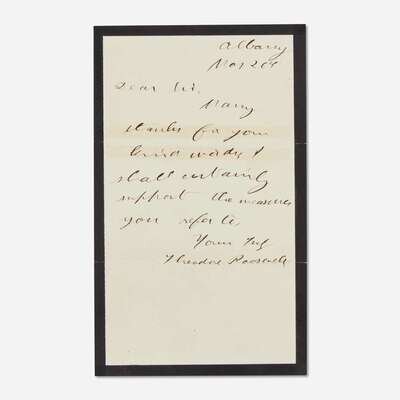 Albany
Mar 20th
Dear Sir,
Many
thanks for your
kind words; I
shall certainly
support the measures
you refer to
Yours truly
Theodore Roosevelt